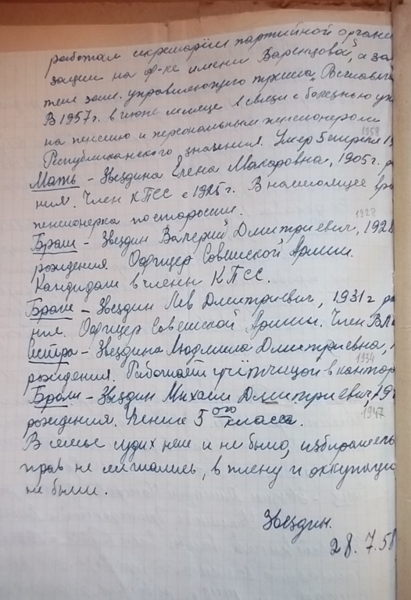 работал секретарём партийной органи
зации на ф-ке имени Варенцовой, а за
тем зам. управляющего треста
В 1957 г. в июне месяце в связи с болезнью
на пенсию и персональным пенсионером
Республиканского значения. Умер 5 апреля
1958
Мать - Звездина Елена Макаровна, 1905 г.
ния. Член КПСС с 1925 г. В настоящее вре
пенсионерка по старости.
1928
Брат - Звездин Валерий Дмитриевич, 1928
рождения. Офицер Советской Армии.
Кандидат в члены КПСС.
Брат - Звездин Лев Дмитриевич, 1931 г. ро
ния. Офицер Советской Армии. Член ВЛ
Сестра - Звездина Людмила Дмитриевна,
1934
рождения. Работает учётчицой в контор
Брат - Звездин Михаил Дмитриевич, 19
1947
рождения. Ученик 5 ого класса.
В семье судих нет и не было, избирательн
прав не лишались, в плену и оккупации
не были.
Звездин.
28.7.58